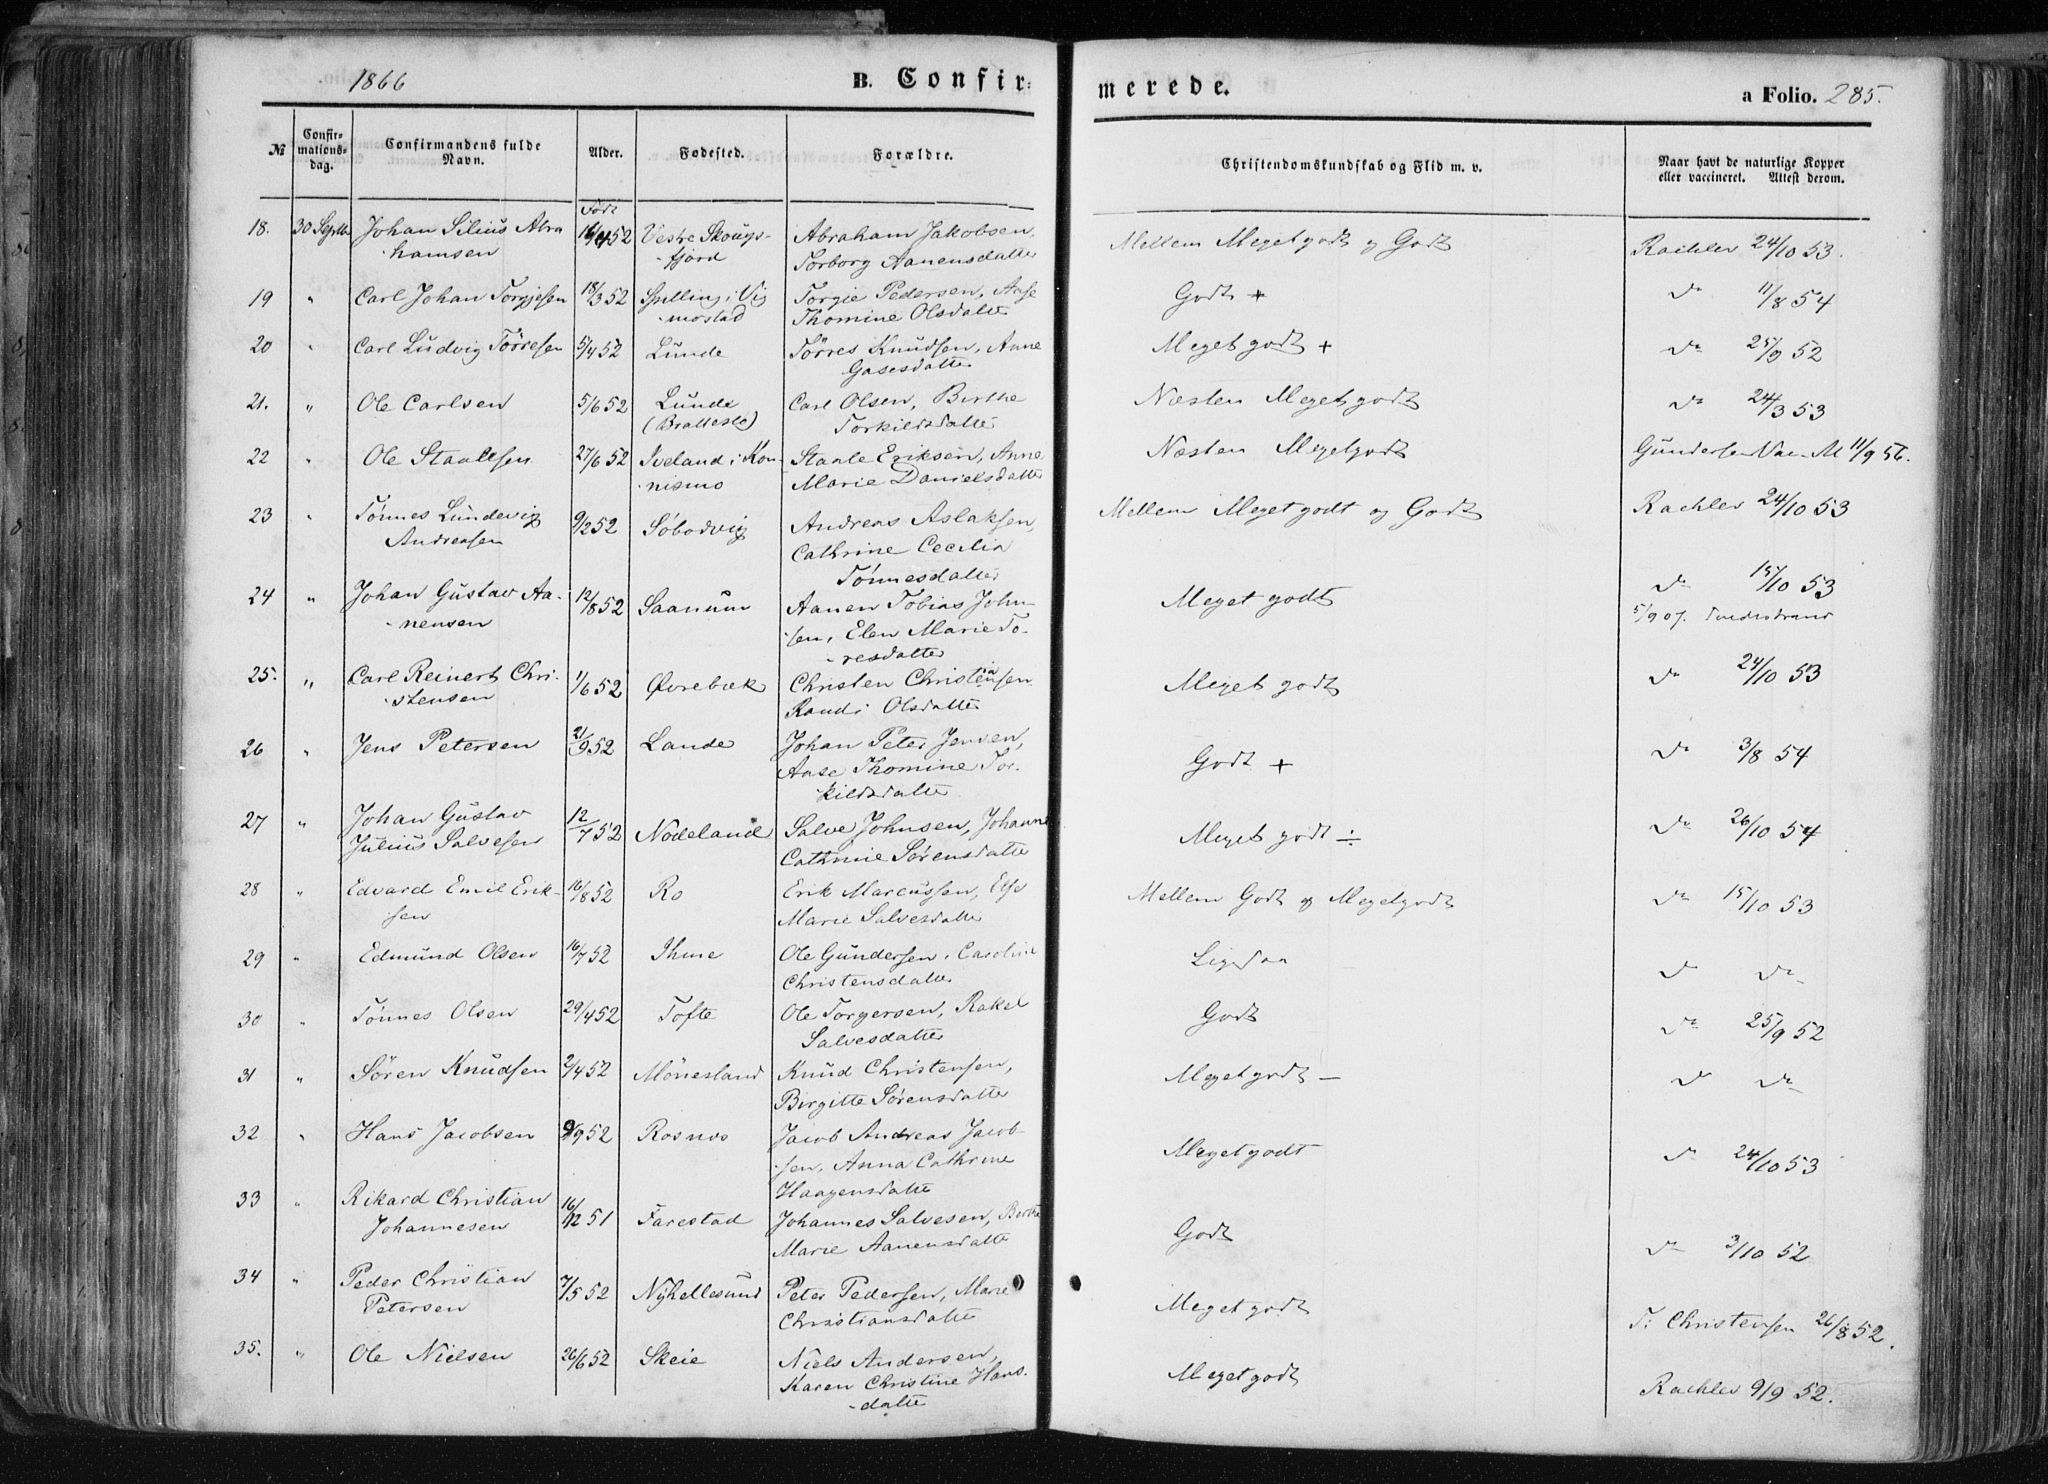 1866 B. Confir= merede. a Folio. 285.
№ Confir-mations-dag. Confirmandens fulde Navn. Alder. Fødested. Forældre. Christendomskundskab og Flid m. v. Naar havt de naturlige Kopper eller vaccineret. Attest derom.
Født
18. 30 Septbr Johan Silius Abra 16/4 52 Vestre Skougs- Abraham Jakobsen, Mellem Meget godt og Godt Rachlev 24/10 53.
hamsen fjord Torborg Aanensdatter
19 " Carl Johan Torgjesen 18/3 52 Spilling i Vig Torgie Pedersen, Aase Godt + do 11/8 54
mostad Thomine Olsdatter
20 " Carl Ludvig Tørresen 5/4 52 Lunde Tørres Knudsen, Anne Meget godt + do 25/9 52
Gasesdatter
21. " Ole Carlsen 5/6 52 Lunde Carl Olsen, Birthe Næsten Meget godt do 24/3 53
(Brattestø) Torkildsdatter
22 " Ole Staalesen 27/6 52 Iveland i Kon- Staale Eriksen, Anne Næsten Megetgodt Gundersen Vac. M 11/9 56.
nesmo Marie Danielsdatter
23 " Tønnes Lundevig 9/2 52 Søbodvig Andreas Aslaksen, Mellem Meget godt og Godt Rachlev 24/10 53
Andreasen Cathrine Cecilia
Tønnesdatter
24 " Johan Gustav Aa- 12/8 52 Saanum Aanen Tobias John- Meget godt do 15/10 53
nensen sen, Elen Marie To- 5/9 07. Tvedestrand
resdatter
25. " Carl Reinert Chri- 1/6 52 Øvrebæk Christen Christensen Meget godt do 24/10 53
stensen Randi Olsdatter
26 " Jens Petersen 21/9 52 Lande Johan Peter Jensen, Godt + do 3/8 54
Aase Thomine Tor-
kildsdatter
27 " Johan Gustav 12/7 52 Nodeland Salve Johnsen, Johanne Meget godt ÷ do 26/10 54
Julius Salvesen Cathrine Sørensdatter
28 " Edvard Emil Erik- 16/8 52 Ro Erik Marcussen, Else Mellem Godt og Megetgodt do 15/10 53
sen Marie Salvesdatter
29 " Edmund Olsen 16/7 52 Ihme Ole Gundersen, Caroline Ligesaa do do
Christensdatter
30 " Tønnes Olsen 29/4 52 Tofte Ole Torgersen, Rakel Godt do 25/9 52
Salvesdatter
31 " Søren Knudsen 2/4 52 Mønesland Knud Christensen, Megetgodt - do do
Birgitte Sørensdatter
32 " Hans Jacobsen 9/9 52 Rosnes Jacob Andreas Jacob Megetgodt do 24/10 53
sen, Anna Cathrine
Haagensdatter
33 " Rikard Christian 16/12 51 Farestad Johannes Salvesen, Berthe Godt do 3/10 52
Johannesen Marie Aanensdatter
34 " Peder Christian 7/5 52 Nyhellesund Peter Pedersen, Marie Megetgodt T. Christensen 26/8 52.
Petersen Christiansdatter
35. " Ole Nielsen 26/6 52 Skeie Niels Andersen, Megetgodt Rachlev 9/9 52.
Karen Christine Hans-
datter